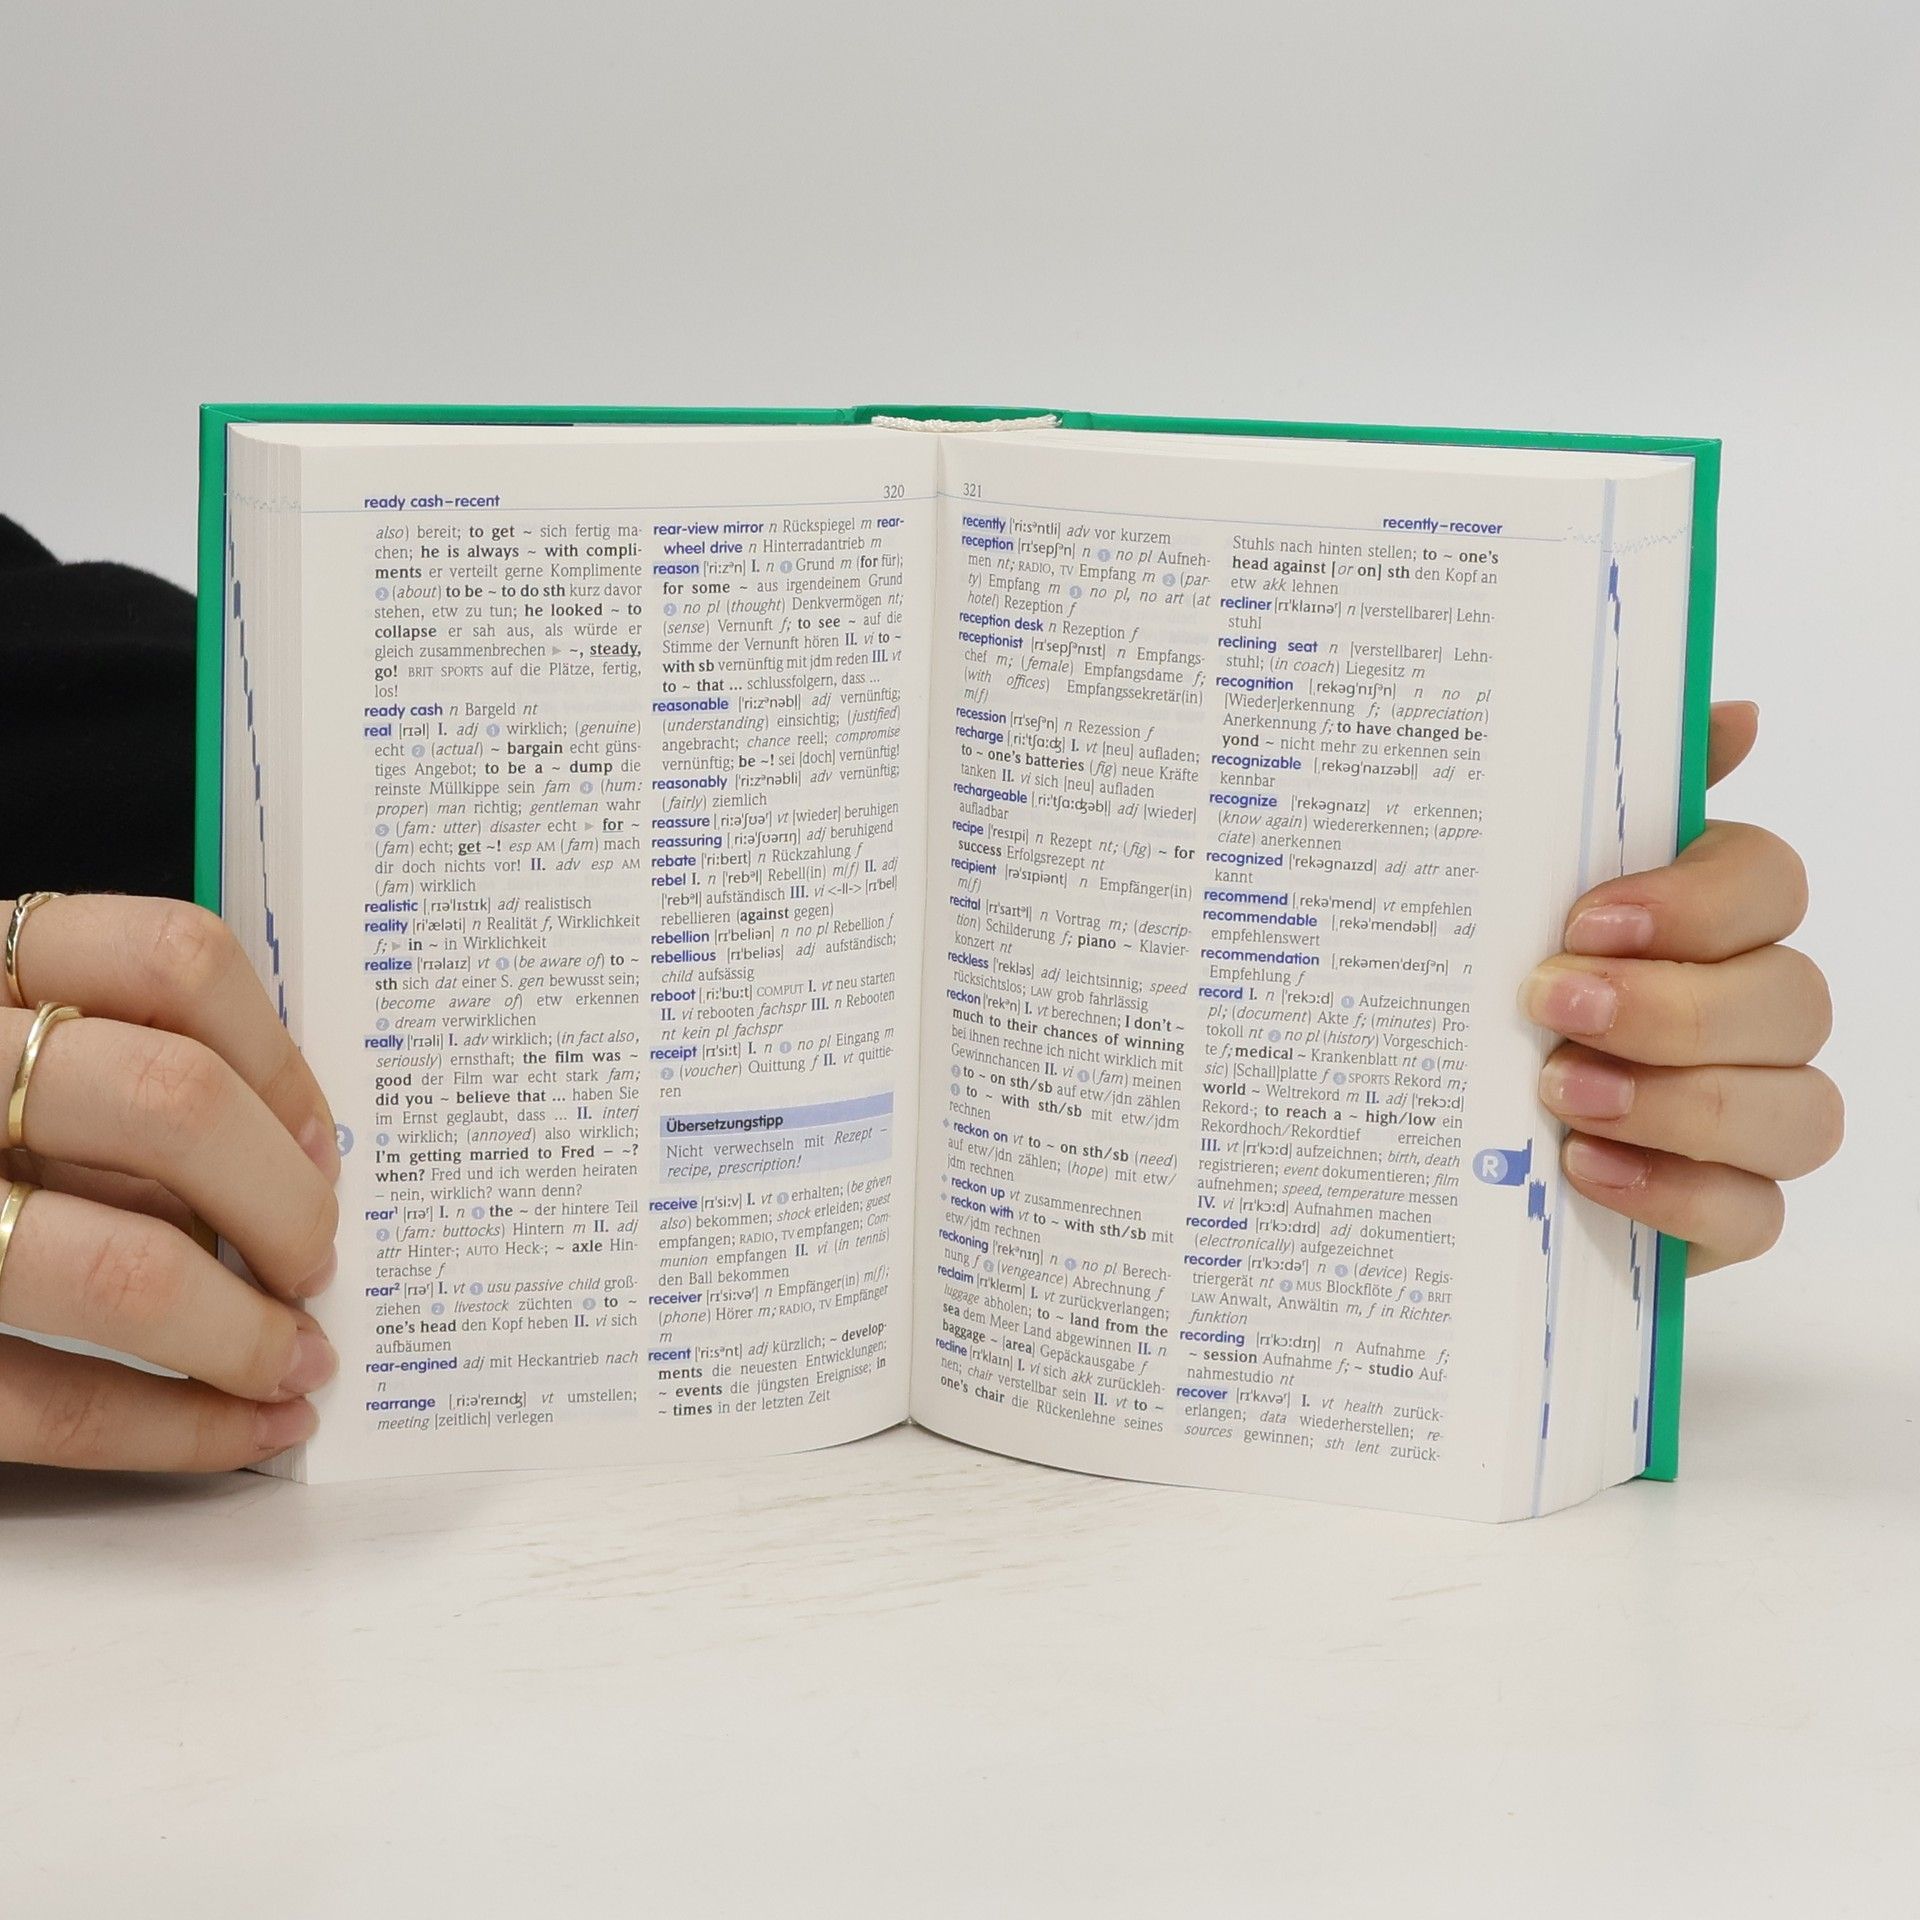 ready cash–recent
320
also) bereit; to get ~ sich fertig ma-
chen; he is always ~ with compli-
ments er verteilt gerne Komplimente
❷ (about) to be ~ to do sth kurz davor
stehen, etw zu tun; he looked ~ to
collapse er sah aus, als würde er
gleich zusammenbrechen ▶ ~, steady,
go! BRIT SPORTS auf die Plätze, fertig,
los!
ready cash n Bargeld nt
real [rɪəl] I. adj ❶ wirklich; (genuine)
echt ❷ (actual) ~ bargain echt güns-
tiges Angebot; to be a ~ dump die
reinste Müllkippe sein fam ❹ (hum:
proper) man richtig; gentleman wahr
❺ (fam: utter) disaster echt ▶ for ~
(fam) echt; get ~! esp AM (fam) mach
dir doch nichts vor! II. adv esp AM
(fam) wirklich
realistic [ˌrɪəˈlɪstɪk] adj realistisch
reality [riˈæləti] n Realität f, Wirklichkeit
f; ▶ in ~ in Wirklichkeit
realize [ˈrɪəlaɪz] vt ❶ (be aware of) to ~
sth sich dat einer S. gen bewusst sein;
(become aware of) etw erkennen
❷ dream verwirklichen
really [ˈrɪəli] I. adv wirklich; (in fact also,
seriously) ernsthaft; the film was ~
good der Film war echt stark fam;
did you ~ believe that ... haben Sie
im Ernst geglaubt, dass ... II. interj
❶ wirklich; (annoyed) also wirklich;
I'm getting married to Fred – ~?
when? Fred und ich werden heiraten
– nein, wirklich? wann denn?
rear¹ [rɪəʳ] I. n ❶ the ~ der hintere Teil
❷ (fam: buttocks) Hintern m II. adj
attr Hinter-; AUTO Heck-; ~ axle Hin-
terachse f
rear² [rɪəʳ] I. vt ❶ usu passive child groß-
ziehen ❷ livestock züchten ❸ to ~
one's head den Kopf heben II. vi sich
aufbäumen
rear-engined adj mit Heckantrieb nach
n
rearrange [ˌri:əˈreɪnʤ] vt umstellen;
meeting [zeitlich] verlegen
rear-view mirror n Rückspiegel m rear-
wheel drive n Hinterradantrieb m
reason [ˈri:zᵊn] I. n ❶ Grund m (for für);
for some ~ aus irgendeinem Grund
❷ no pl (thought) Denkvermögen nt;
(sense) Vernunft f; to see ~ auf die
Stimme der Vernunft hören II. vi to ~
with sb vernünftig mit jdm reden III. vt
to ~ that ... schlussfolgern, dass ...
reasonable [ˈri:zᵊnəbl] adj vernünftig;
(understanding) einsichtig; (justified)
angebracht; chance reell; compromise
vernünftig; be ~! sei [doch] vernünftig!
reasonably [ˈri:zᵊnəbli] adv vernünftig;
(fairly) ziemlich
reassure [ˌri:əˈʃʊəʳ] vt [wieder] beruhigen
reassuring [ˌri:əˈʃʊərɪŋ] adj beruhigend
rebate [ˈri:beɪt] n Rückzahlung f
rebel I. n [ˈrebᵊl] Rebell(in) m(f) II. adj
[ˈrebᵊl] aufständisch III. vi <-ll-> [rɪˈbel]
rebellieren (against gegen)
rebellion [rɪˈbeliən] n no pl Rebellion f
rebellious [rɪˈbeliəs] adj aufständisch;
child aufsässig
reboot [ˌri:ˈbu:t] COMPUT I. vt neu starten
II. vi rebooten fachspr III. n Rebooten
nt kein pl fachspr
receipt [rɪˈsi:t] I. n ❶ no pl Eingang m
❷ (voucher) Quittung f II. vt quittie-
ren
Übersetzungstipp
Nicht verwechseln mit Rezept –
recipe, prescription!
receive [rɪˈsi:v] I. vt ❶ erhalten; (be given
also) bekommen; shock erleiden; guest
empfangen; RADIO, TV empfangen; Com-
munion empfangen II. vi (in tennis)
den Ball bekommen
receiver [rɪˈsi:vəʳ] n Empfänger(in) m(f);
(phone) Hörer m; RADIO, TV Empfänger
m
recent [ˈri:sᵊnt] adj kürzlich; ~ develop-
ments die neuesten Entwicklungen;
~ events die jüngsten Ereignisse; in
~ times in der letzten Zeit
321
recently–recover
recently [ˈri:sᵊntli] adv vor kurzem
reception [rɪˈsepʃᵊn] n ❶ no pl Aufneh-
men nt; RADIO, TV Empfang m ❷ (par-
ty) Empfang m ❸ no pl, no art (at
hotel) Rezeption f
reception desk n Rezeption f
receptionist [rɪˈsepʃᵊnɪst] n Empfangs-
chef m; (female) Empfangsdame f;
(with offices) Empfangssekretär(in)
m(f)
recession [rɪˈseʃᵊn] n Rezession f
recharge [ˌri:ˈtʃɑ:ʤ] I. vt [neu] aufladen;
to ~ one's batteries (fig) neue Kräfte
tanken II. vi sich [neu] aufladen
rechargeable [ˌri:ˈtʃɑ:ʤəbl] adj [wieder]
aufladbar
recipe [ˈresɪpi] n Rezept nt; (fig) ~ for
success Erfolgsrezept nt
recipient [rəˈsɪpiənt] n Empfänger(in)
m(f)
recital [rɪˈsaɪtᵊl] n Vortrag m; (descrip-
tion) Schilderung f; piano ~ Klavier-
konzert nt
reckless [ˈrekləs] adj leichtsinnig; speed
rücksichtslos; LAW grob fahrlässig
reckon [ˈrekᵊn] I. vt berechnen; I don't ~
much to their chances of winning
bei ihnen rechne ich nicht wirklich mit
Gewinnchancen II. vi ❶ (fam) meinen
❷ to ~ on sth/sb auf etw/jdn zählen
❸ to ~ with sth/sb mit etw/jdm
rechnen
◆ reckon on vt to ~ on sth/sb (need)
auf etw/jdn zählen; (hope) mit etw/
jdm rechnen
◆ reckon up vt zusammenrechnen
◆ reckon with vt to ~ with sth/sb mit
etw/jdm rechnen
reckoning [ˈrekᵊnɪŋ] n ❶ no pl Berech-
nung f ❷ (vengeance) Abrechnung f
reclaim [rɪˈkleɪm] I. vt zurückverlangen;
luggage abholen; to ~ land from the
sea dem Meer Land abgewinnen II. n
baggage ~ [area] Gepäckausgabe f
recline [rɪˈklaɪn] I. vi sich akk zurückleh-
nen; chair verstellbar sein II. vt to ~
one's chair die Rückenlehne seines
Stuhls nach hinten stellen; to ~ one's
head against [or on] sth den Kopf an
etw akk lehnen
recliner [rɪˈklaɪnəʳ] n [verstellbarer] Lehn-
stuhl
reclining seat n [verstellbarer] Lehn-
stuhl; (in coach) Liegesitz m
recognition [ˌrekəgˈnɪʃᵊn] n no pl
[Wieder]erkennung f; (appreciation)
Anerkennung f; to have changed be-
yond ~ nicht mehr zu erkennen sein
recognizable [ˌrekəgˈnaɪzəbl] adj er-
kennbar
recognize [ˈrekəgnaɪz] vt erkennen;
(know again) wiedererkennen; (appre-
ciate) anerkennen
recognized [ˈrekəgnaɪzd] adj attr aner-
kannt
recommend [ˌrekəˈmend] vt empfehlen
recommendable [ˌrekəˈmendəbl] adj
empfehlenswert
recommendation [ˌrekəmenˈdeɪʃᵊn] n
Empfehlung f
record I. n [ˈrekɔ:d] ❶ Aufzeichnungen
pl; (document) Akte f; (minutes) Pro-
tokoll nt ❷ no pl (history) Vorgeschich-
te f; medical ~ Krankenblatt nt ❸ (mu-
sic) [Schall]platte f ❹ SPORTS Rekord m;
world ~ Weltrekord m II. adj [ˈrekɔ:d]
Rekord-; to reach a ~ high/low ein
Rekordhoch/Rekordtief erreichen
III. vt [rɪˈkɔ:d] aufzeichnen; birth, death
registrieren; event dokumentieren; film
aufnehmen; speed, temperature messen
IV. vi [rɪˈkɔ:d] Aufnahmen machen
recorded [rɪˈkɔ:dɪd] adj dokumentiert;
(electronically) aufgezeichnet
recorder [rɪˈkɔ:dəʳ] n ❶ (device) Regis-
triergerät nt ❷ MUS Blockflöte f ❸ BRIT
LAW Anwalt, Anwältin m, f in Richter-
funktion
recording [rɪˈkɔ:dɪŋ] n Aufnahme f;
~ session Aufnahme f; ~ studio Auf-
nahmestudio nt
recover [rɪˈkʌvəʳ] I. vt health zurück-
erlangen; data wiederherstellen; re-
sources gewinnen; sth lent zurück-
R